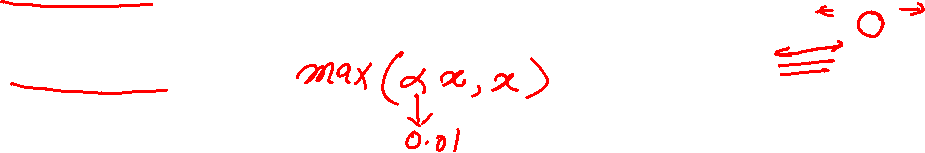 max(αx, x)
0.01